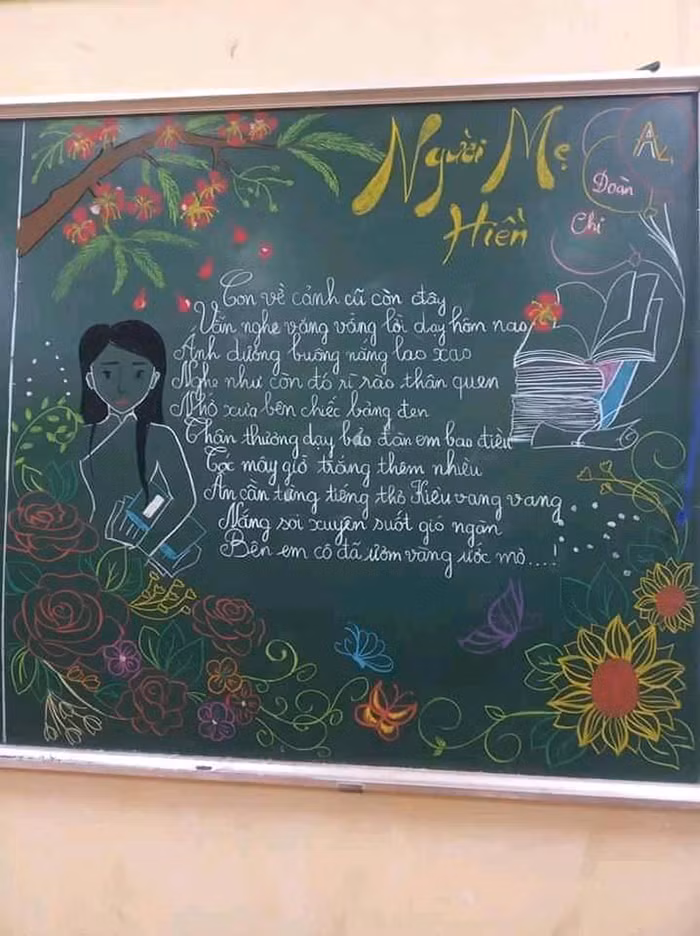 Người Mẹ
Hiền
A4
Đoàn
Chi
Con về cảnh cũ còn đây
Vẫn nghe văng vẳng lời dạy hôm nao
Ánh dương buông nắng lao xao
Nghe như còn đó rì rào thân quen
Nhớ xưa bên chiếc bảng đen
Thân thương dạy bảo đàn em bao điều
Tóc mây giờ trắng thêm nhiều
Ân cần từng tiếng thơ Kiều vang vang
Nắng soi xuyên suốt gió ngàn
Bên em cô đã ươm vàng ước mơ....!